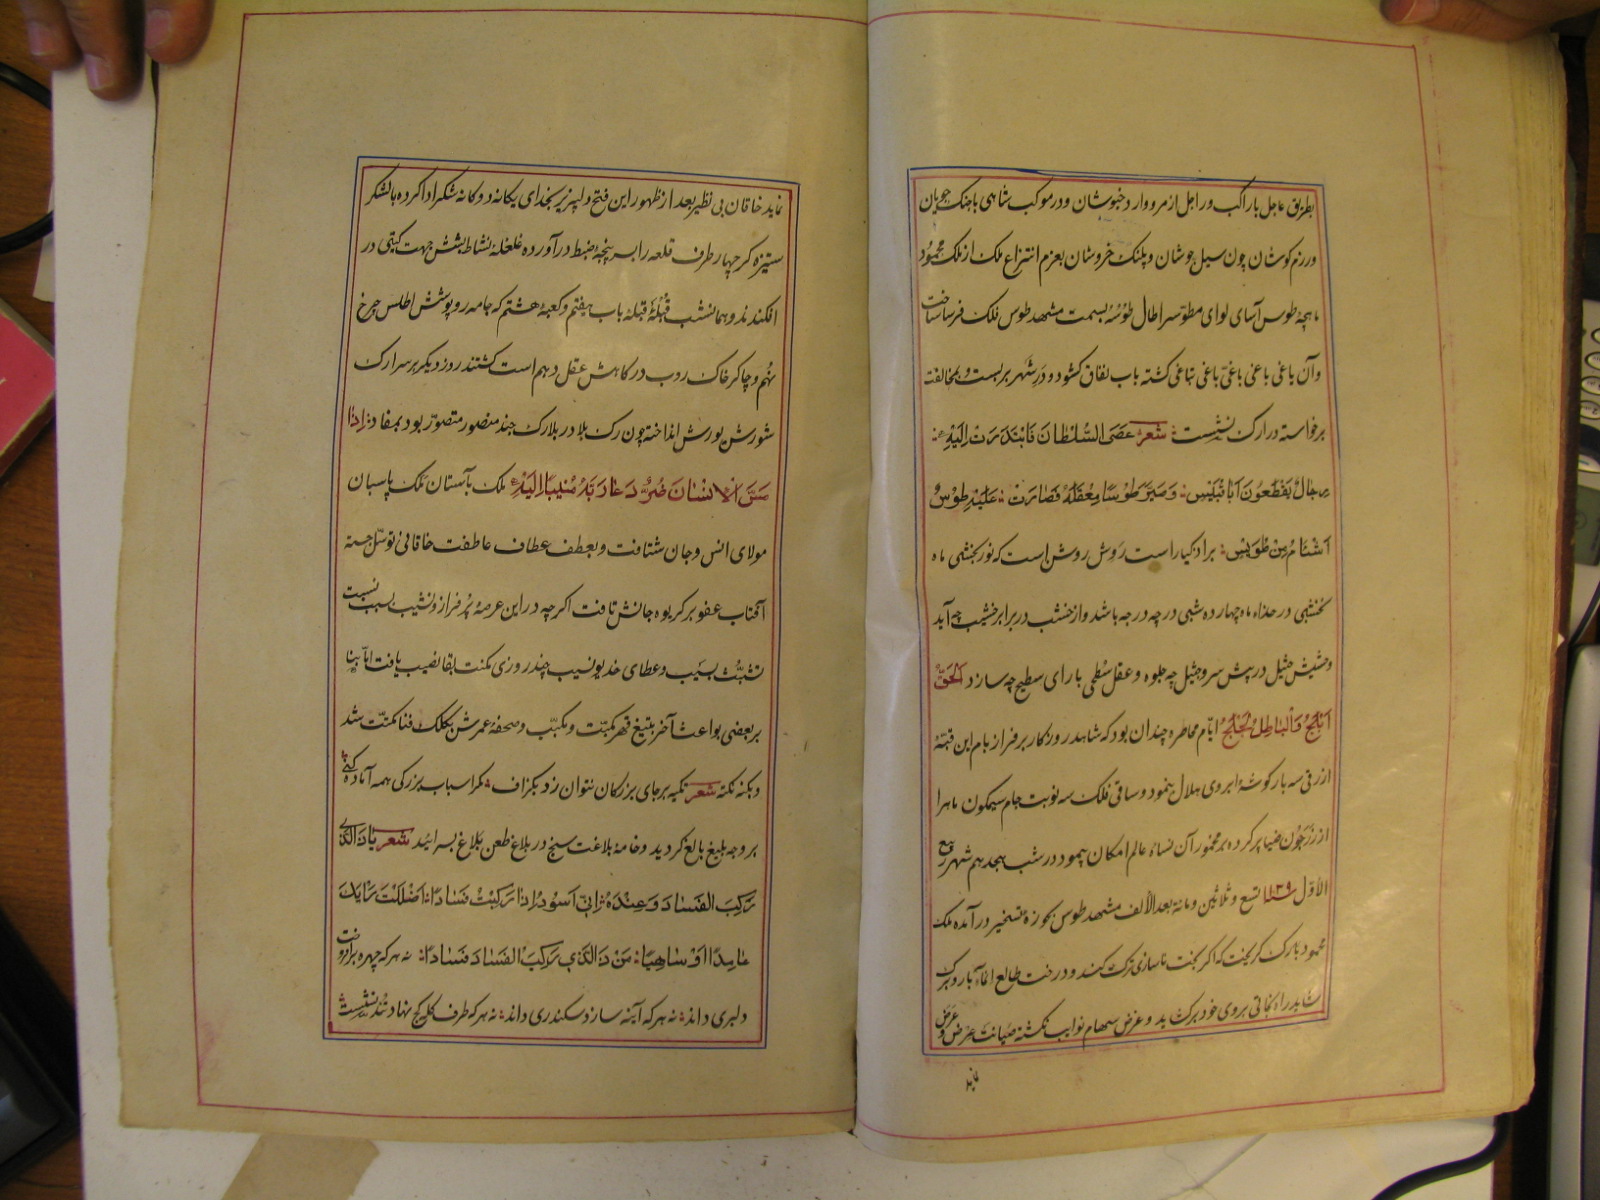 بطریق عاجل با راکب و راجل از مرو وارد خبوشان و در موکب شاهی با جنک جویان
و رزم کوشان چون سیل جوشان و پلنک خروشان بعزم انتزاع ملک از ملک محمود
ماهچهٔ طوس آسای لوای مطوّس را طال طوسه بسمت مشهد طوس فلک فرسا ساخت
و آن یاغی باغی باغیّ باغی تباغی کشته باب نفاق کشود و در شهر بر بست و بمخالفت
برخواسته در ارک نشست شعر عصی السلطان فابتدرت الیه
رجال یقطعون ابا قبیس و صیر طوسا معقله فصارت علیه طوس
اشئام من طویس براد کیا راست روش روشن است که نور بخشی ماه
نخشبی در حذاء ماه چهارده شبی در چه درجه باشد و از خشب در برابر خشیب چه آید
و حشیش حثیل در پیش سرو جثیل چه جلوه و عقل سطحی با رای سطیح چه سازد الحق
ابلج و الباطل لجلج ایّام محاصره چندان بود که شاهد روزکار بر فراز بام این قبّهٔ
ازرقی سه بار کوشهٔ ابروی هلال بنمود و ساقی فلک سه نوبت جام سیمکون ماه را
از زرجون ضیا پر کرده بر مخمور آن نساءهٔ عالم امکان پیمود در شب هیجدهم شهر ربیع
الاول ۱۱۳۹ تسع و ثلاثین و مائة بعد الالف مشهد طوس بحوزهٔ تسخیر در آمده ملک
محمود بارک کریخت که اکر بخت ناسازی ترک کند و درخت طالع اناآ بار و برک
شاید راه نجاتی بروی خود برکشاید و غرض سهام نوایب نکشته صیانت عرض و عرض
نماید
نماید خاقان بی نظیر بعد از ظهور این فتح دلپزیر بخدای یکانه دوکانه شکر ادا کرده با لشکر
ستیزه کر چهار طرف قلعه را بسر پنجهٔ ضبط در آورده غلغلهٔ نشاط بشش جهت کیتی در
افکندند و همانشب قبلهٔ قبلهٔ باب هفتم و کعبهٔ هشتم که جامه روپوشش اطلس چرخ
نهم و چاکر خاک روب درکاهش عقل دهم است کشتند روز دیکر بر سر ارک
شورش یورش انداخته چون رک بلا در بلارک جند منصور متصوّر بود بمفاد و اذا
مس الانسان ضر دعا ربه منیبا الیه ملک بآستان ملک پاسبان
مولای انس و جان شتافت و بعطف عطاف عاطفت خاقانی توسّل جسته
آفتاب عفو بر کریوه جانش تافت اکرچه در این عرصهٔ پر فراز و نشیب بسبب نسبت
تشبّث بسیب و عطای خدیو نسیب چند روزی مکنت بقا نصیب یافت امّا بنا
بر بعضی بواعث آخر بتیغ قهر مکبّت و مکبّب و صحفهٔ عمرش بکلک فنا مکتّت شد
و بکنه نکته شعر تکیه بر جای بزرکان نتوان زد بکزاف مکر اسباب بزرکی همه آماده کنی
بر وجه بلیغ بالغ کردید و خامهٔ بلاغت سنج در بلاغ طعن بلاغ بسرائید شعر یا ذالذی
رکب الفساد و عنده انی اسود اذا رکبت فسادا اضللت رایک
عامدا او ساهیا من ذالذی رکب الفساد فسادا نه هرکه چهره برافروخت
دلبری داند نه هرکه آینه سازد سکندری داند نه هرکه طرف کله کج نهاد و تند نشست